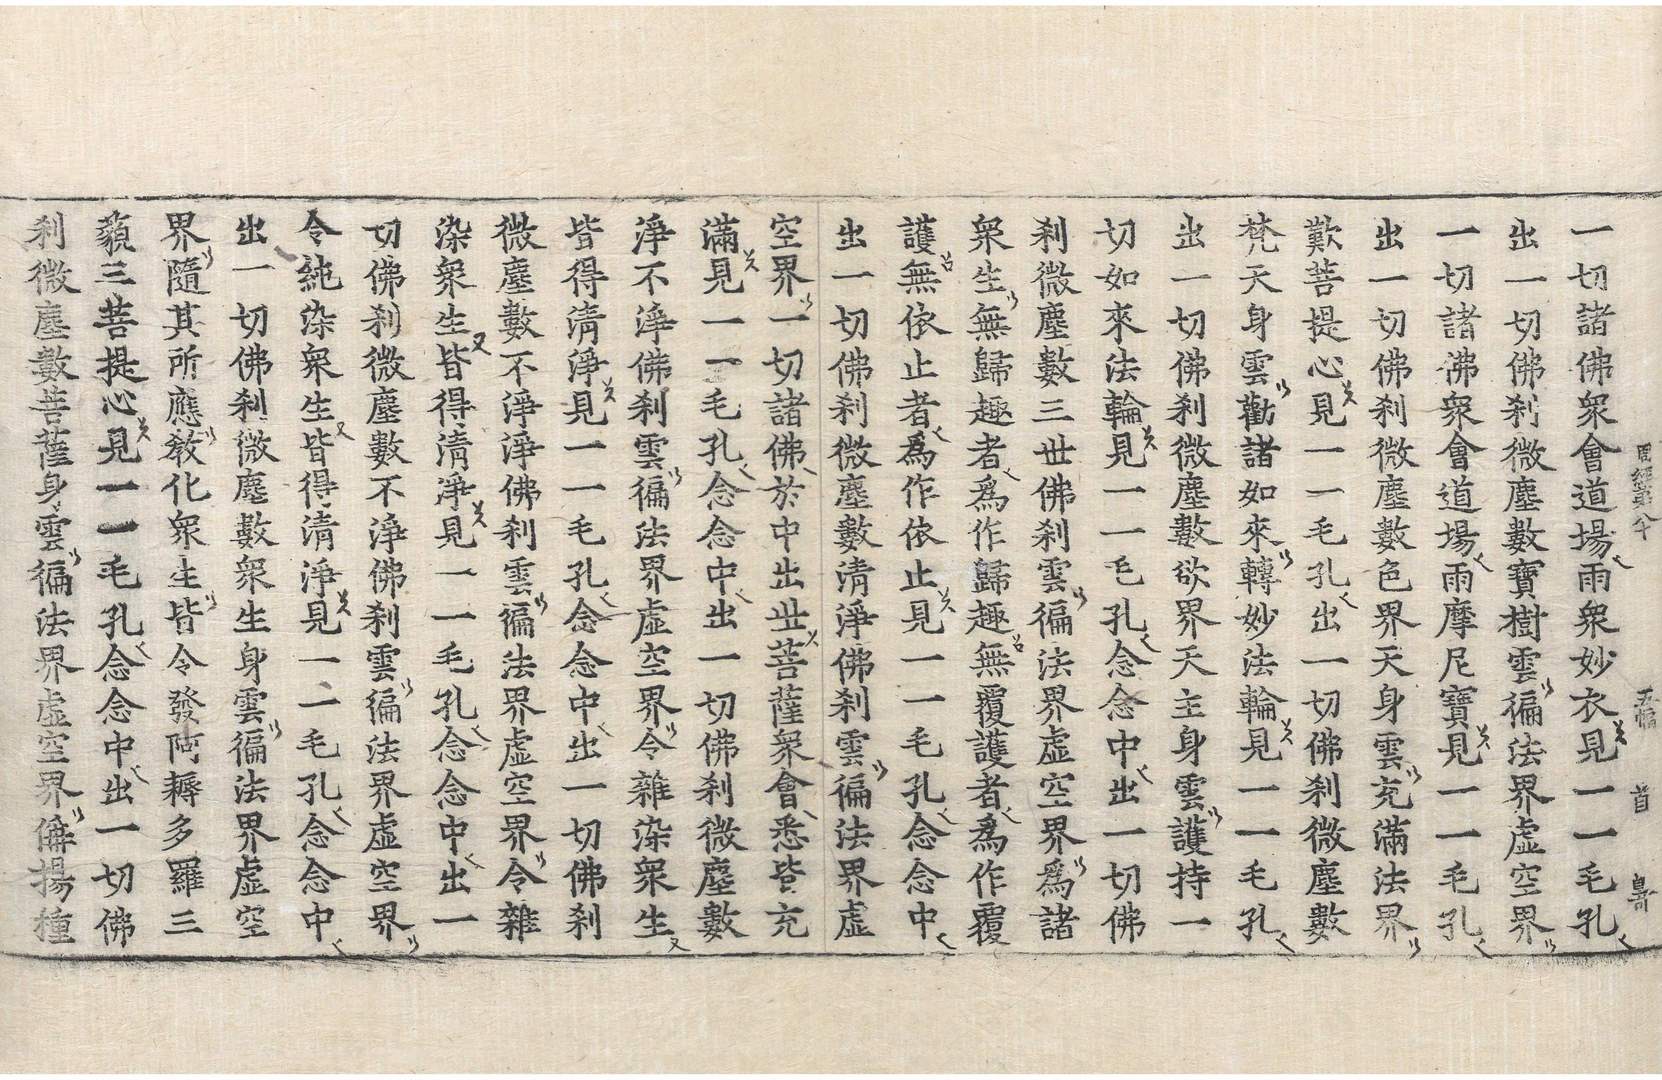 周經第八十 五幅 首
一切諸佛衆會道場雨衆妙衣見一一毛孔
出一切佛刹微塵數寶樹雲徧法界虛空界
一切諸佛衆會道場雨摩尼寶見一一毛孔
出一切佛刹微塵數色界天身雲充滿法界
歎菩提心見一一毛孔出一切佛刹微塵數
梵天身雲勸諸如來轉妙法輪見一一毛孔
出一切佛刹微塵數欲界天主身雲護持一
切如來法輪見一一毛孔念念中出一切佛
刹微塵數三世佛刹雲徧法界虛空界爲諸
衆生無歸趣者爲作歸趣無覆護者爲作覆
護無依止者爲作依止見一一毛孔念念中
出一切佛刹微塵數清淨佛刹雲徧法界虛
空界一切諸佛於中出世菩薩衆會悉皆充
滿見一一毛孔念念中出一切佛刹微塵數
淨不淨佛刹雲徧法界虛空界令雜染衆生
皆得清淨見一一毛孔念念中出一切佛刹
微塵數不淨淨佛刹雲徧法界虛空界令雜
染衆生皆得清淨見一一毛孔念念中出一
切佛刹微塵數不淨佛刹雲徧法界虛空界
令純染衆生皆得清淨見一一毛孔念念中
出一切佛刹微塵數衆生身雲徧法界虛空
界隨其所應教化衆生皆令發阿耨多羅三
藐三菩提心見一一毛孔念念中出一切佛
刹微塵數菩薩身雲徧法界虛空界稱揚種